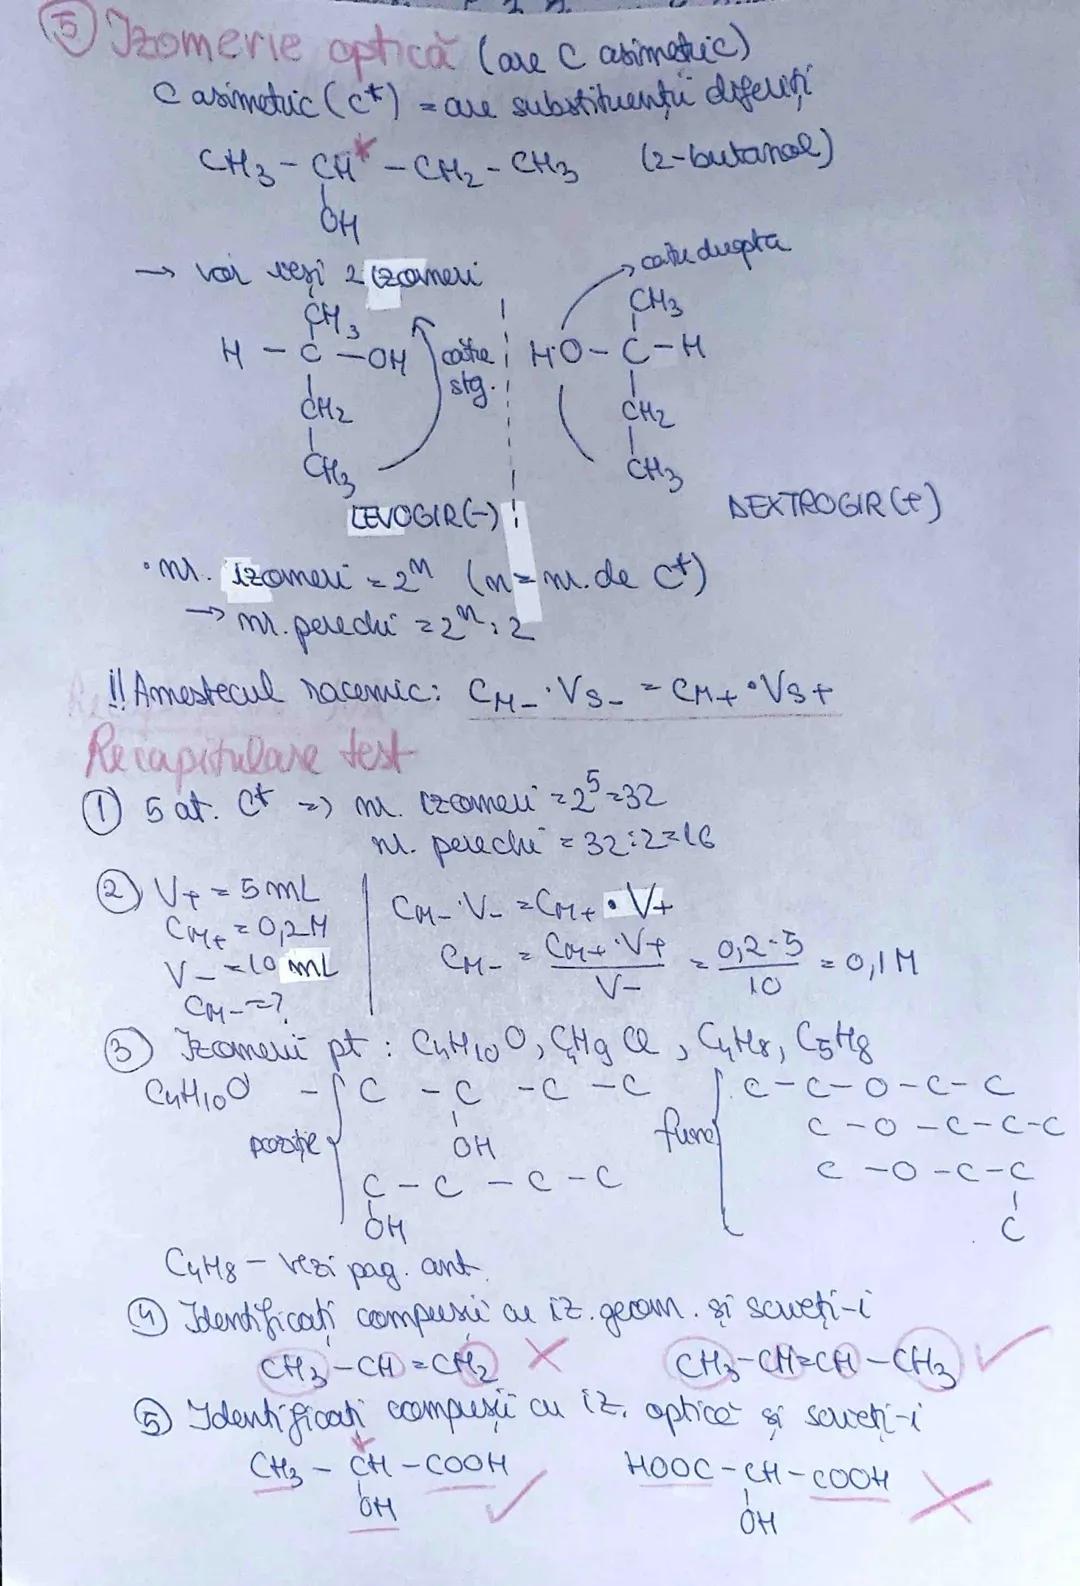 5 Izomerie optică (are C asimetric)
C asimetric (C*) = are substituenți diferiți
CH3 - CH* - CH2 - CH3 (2-butanol)
OH
→ vor ieși 2 izomeri
către dreapta
CH3 CH3
H - C - OH către HO - C - H
stg.
CH2 CH2
CH3 CH3
LEVOGIR(-) DEXTROGIR(+)
• nr. izomeri = 2^n (n = nr. de C*)
→ nr. perechi = 2^n : 2
!! Amestecul racemic: CM- · VS- = CM+ · VS+
Recapitulare test
1 5 at. C* => nr. izomeri = 2^5 = 32
nr. perechi = 32:2=16
2 V+ = 5mL
CM+ = 0,2M
V- = 10 mL
CM- = ?
CM- · V- = CM+ · V+
CM- = CM+ · V+ / V- = 0,2·5 / 10 = 0,1M
3 Izomeri pt : C4H10O, C4H9Cl, C4H8, C5H8
C4H10O - poziție
C - C - C - C
OH
C - C - C - C
OH
func
C - C - O - C - C
C - O - C - C - C
C - O - C - C
C
C4H8 - vezi pag. ant.
4 Identificați compușii cu iz. geom. și scrieți-i
CH3 - CH = CH2 ✗ CH3 - CH = CH - CH3 ✓
5 Identificați compușii cu iz. optică și scrieți-i
CH3 - CH* - COOH ✓ HOOC - CH - COOH ✗
OH OH